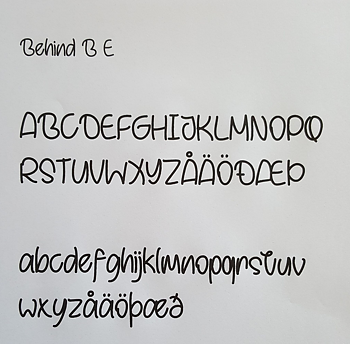 Behind B E
ABCDEFGHIJKLMNOPQ
RSTUVWXYZÅÄÖÐÆÞ
abcdefghijklmnopqrstuv
wxyzåäöþœð